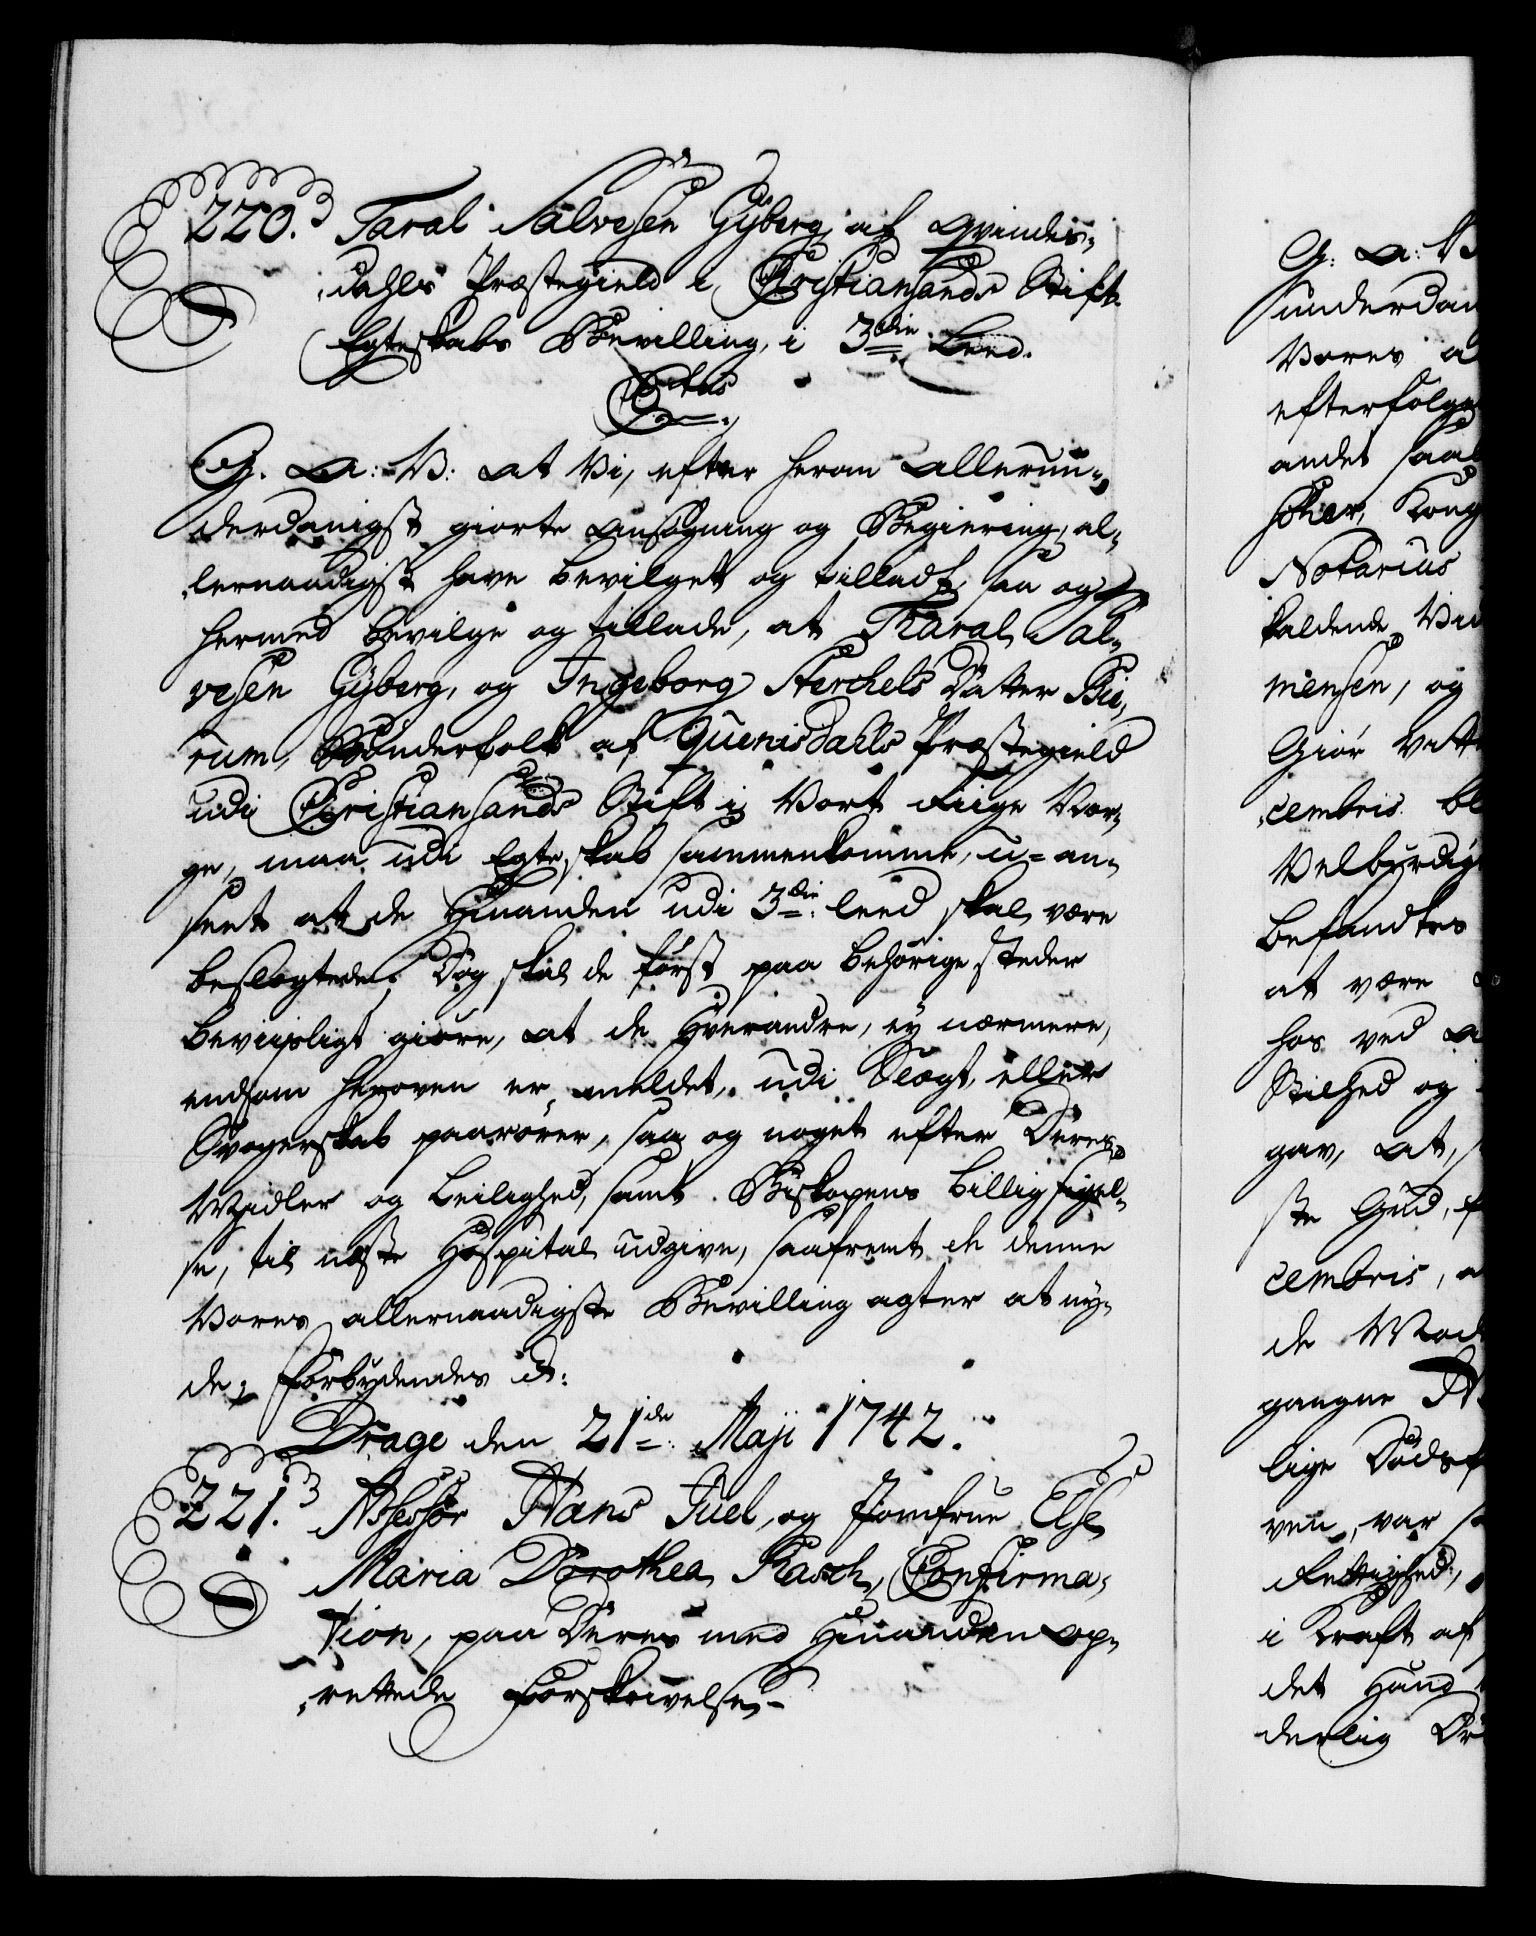 220. Taral Salvesen Gÿberg, af Qvindis-
dahls Præstegield i Christiansands Stift.
Egteskabs Bevilling, i 3die Leed.
Gratis
G. A: V: at Vi, efter herom allerun-
derdanigst giorte Ansøgning og Begiering, al-
lernaadigst have bevilget og tilladt, saa og
hermed bevilge og tillade, at Taral Sal-
vesen Gÿberg, og Ingeborg Aerchels Datter Bie-
rum, Bønderfolk af Quenisdahls Præstegield
udi Christiansands Stift i Vort Riige Nor-
ge, maa udi Egteskab sammenkomme, u-an-
seet at de Hinanden udi 3die leed skal være
beslægtede. Dog skal de først paa behørige steder
beviisligt giøre, at de Hverandre, ey nærmere,
end som heroven er meldet, udi Slægt, eller
Svogerskab paarører, saa og noget efter Deres
Midler og Leilighed, samt Biskopens billig sigel-
se, til næste Hospital udgive, saafremt de denne
Vores allernaadigste Bevilling agter at ny-
de, Forbydendes etc:
Drage den 21de Maji 1742.
221. Assessor Hans Juel, og Jomfrue Else
Maria Dorothea Rasch, Confirma-
tion, paa Deres med Hinanden op-
rettede Forskrivelse.
G: A: V
underdan
Vores a
efterfølge
andet saal
Notarius
kaldende
mensen, og
Giør vitt
cembris. bl
Velbyrdig
befandtes
at være
hos ved a
Stilhed og
gav, at, s
ste Gud, f
cembris, a
de Mod
gangne
lige Dødsf
ven, var
Rettighed,
i Kraft af
det Hund
derlig